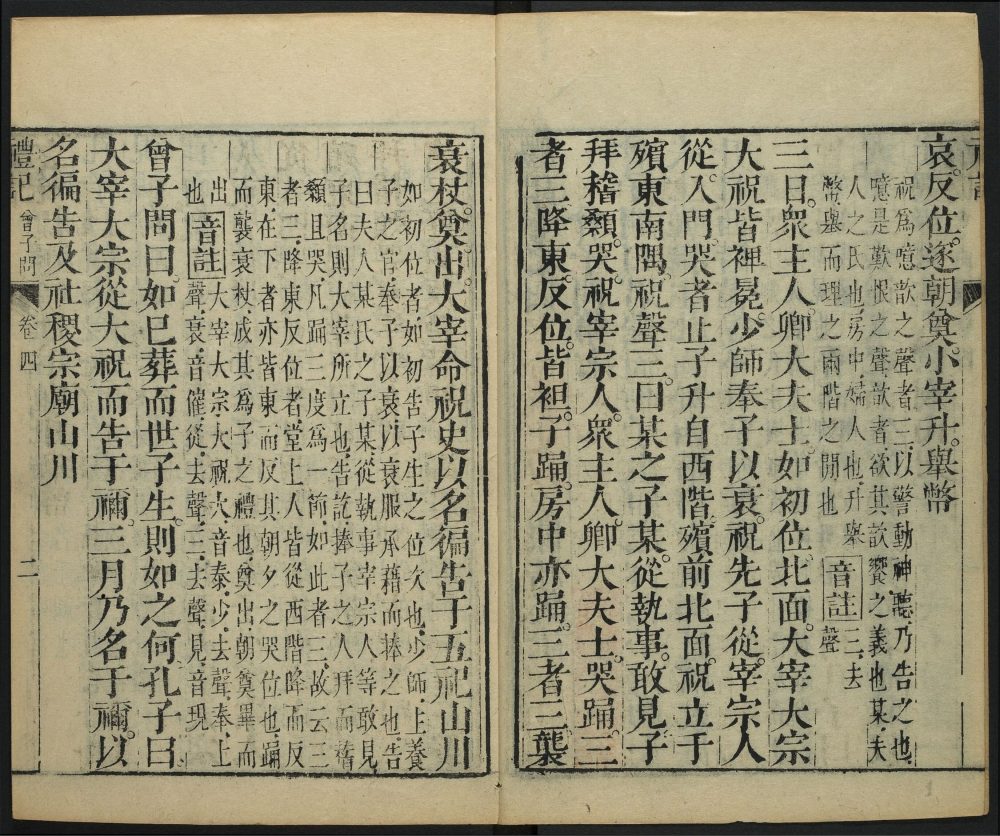 哀。反位。遂朝奠。小宰升。舉幣
祝爲噫歆之聲者三。以警動神聽。乃告之也。
噫是歎恨之聲。歆者欲其歆饗之義也。某。夫
人之氏也。房中。婦人也。升舉
幣。舉而埋之兩階之間也
音註
三。去
聲
三日。衆主人。卿大夫士。如初位。北面。大宰大宗
大祝皆裨冕。少師奉子以衰。祝先子從。宰宗人
從。入門。哭者止。子升自西階。殯前北面。祝立于
殯東南隅。祝聲三。曰。某之子某。從執事。敢見。子
拜稽顙。哭。祝宰宗人。衆主人。卿大夫士。哭踊。三
者三。降東反位。皆袒。子踊。房中亦踊。三者三。襲
衰杖。奠出。大宰命祝史以名徧告于五祀山川
如初位者。如初告子生之位次也。少師。主養
子之官。奉子以衰。以衰服承藉而捧之也。告
曰夫人某氏之子某從執事宰宗人等敢見
子名則大宰所立也。告訖捧子之人拜而稽
顙且哭。凡踊三度爲一節。如此者三。故云三
者三。降東反位者。堂上人皆從西階降而反
東。在下者亦皆東而反其朝夕之哭位也。踊
而襲衰杖。成其爲子之禮也。奠出。朝奠畢而
出
也
音註
大宰大宗大祝。大音泰。少去聲。奉。上
聲。衰音催。從。去聲。三。去聲。見音現
曾子問曰。如已葬而世子生。則如之何。孔子曰。
大宰大宗從大祝而告于禰。三月乃名于禰。以
名徧告及社稷宗廟山川
禮記
曾子問
卷四
二